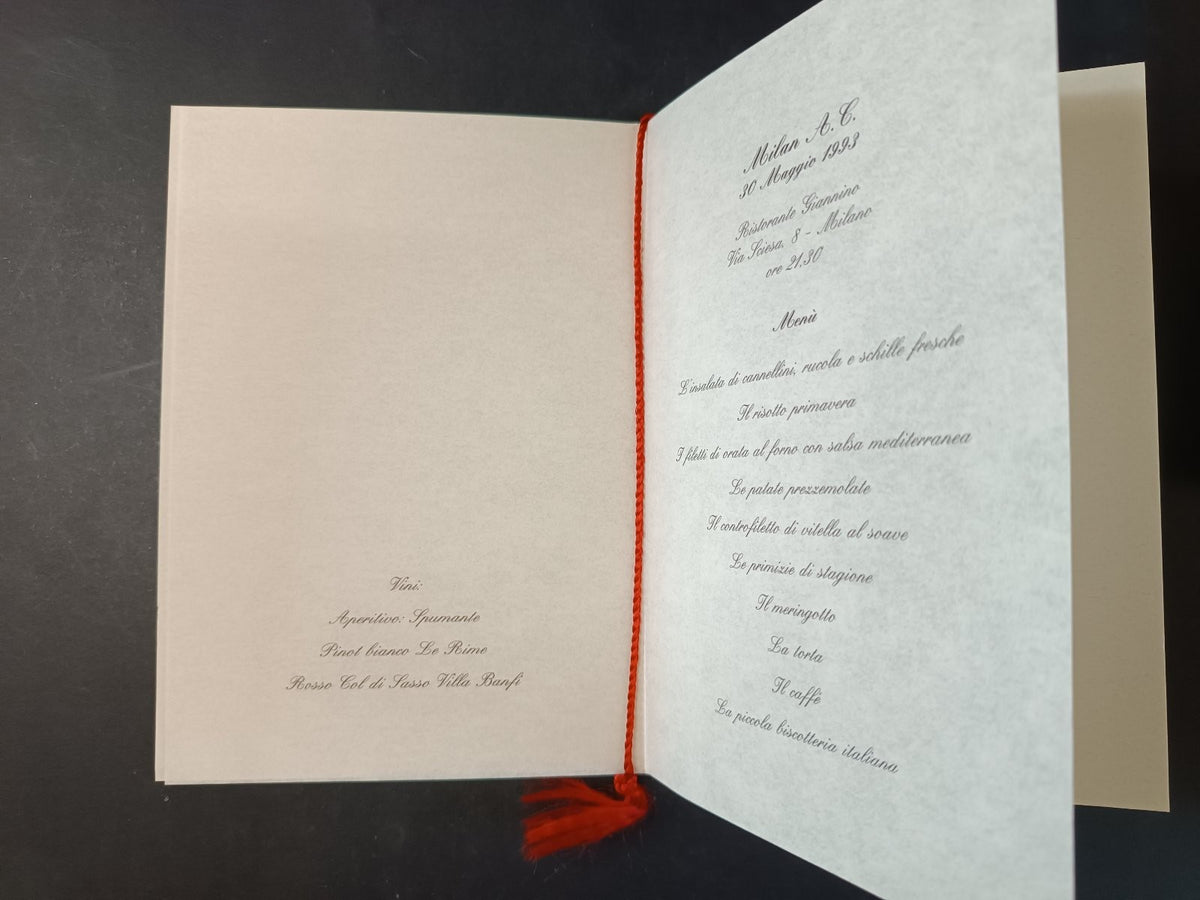 Vini:
Aperitivo: Spumante
Pinot bianco Le Rime
Rosso Col di Sasso Villa Banfi
Milan A.C.
30 Maggio 1993
Ristorante Giannino
Via Sciesa, 8 - Milano
ore 21,30
Menù
L'insalata di cannellini, rucola e schille fresche
Il risotto primavera
I filetti di orata al forno con salsa mediterranea
Le patate prezzemolate
Il controfiletto di vitella al soave
Le primizie di stagione
Il meringotto
La torta
Il caffè
La piccola biscotteria italiana